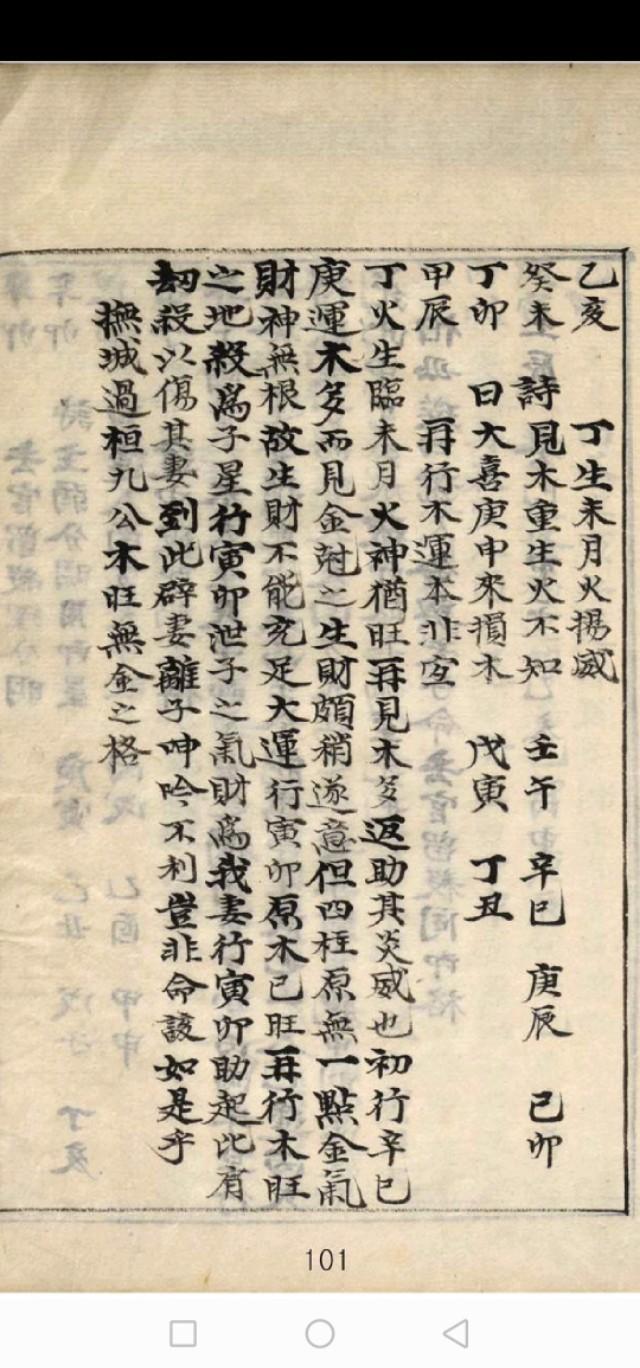 乙亥 丁生未月火揚威
癸未 詩見木重生火不知 壬午 辛巳 庚辰 己卯
丁卯 曰大喜庚申來損木 戊寅 丁丑
甲辰 再行木運本非宜
丁火生臨未月火神猶旺再見木多返助其炎威也初行辛巳
庚運木多而見金尅之生財頗稍遂意但四柱原無一點金氣
財神無根故生財不能充足大運行寅卯原木已旺再行木旺
之地殺為子星行寅卯泄子之氣財為我妻行寅卯助起比肩
劫殺以傷其妻到此辟妻離子呻吟不利豈非命該如是乎
撫城過桓九公木旺無金之格
101